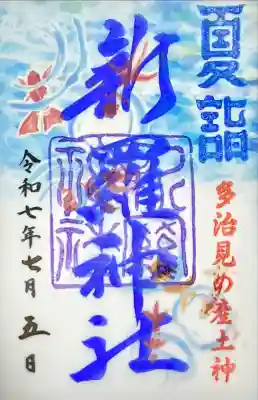 夏詣
多治見の産土神
新羅神社
令和七年七月五日